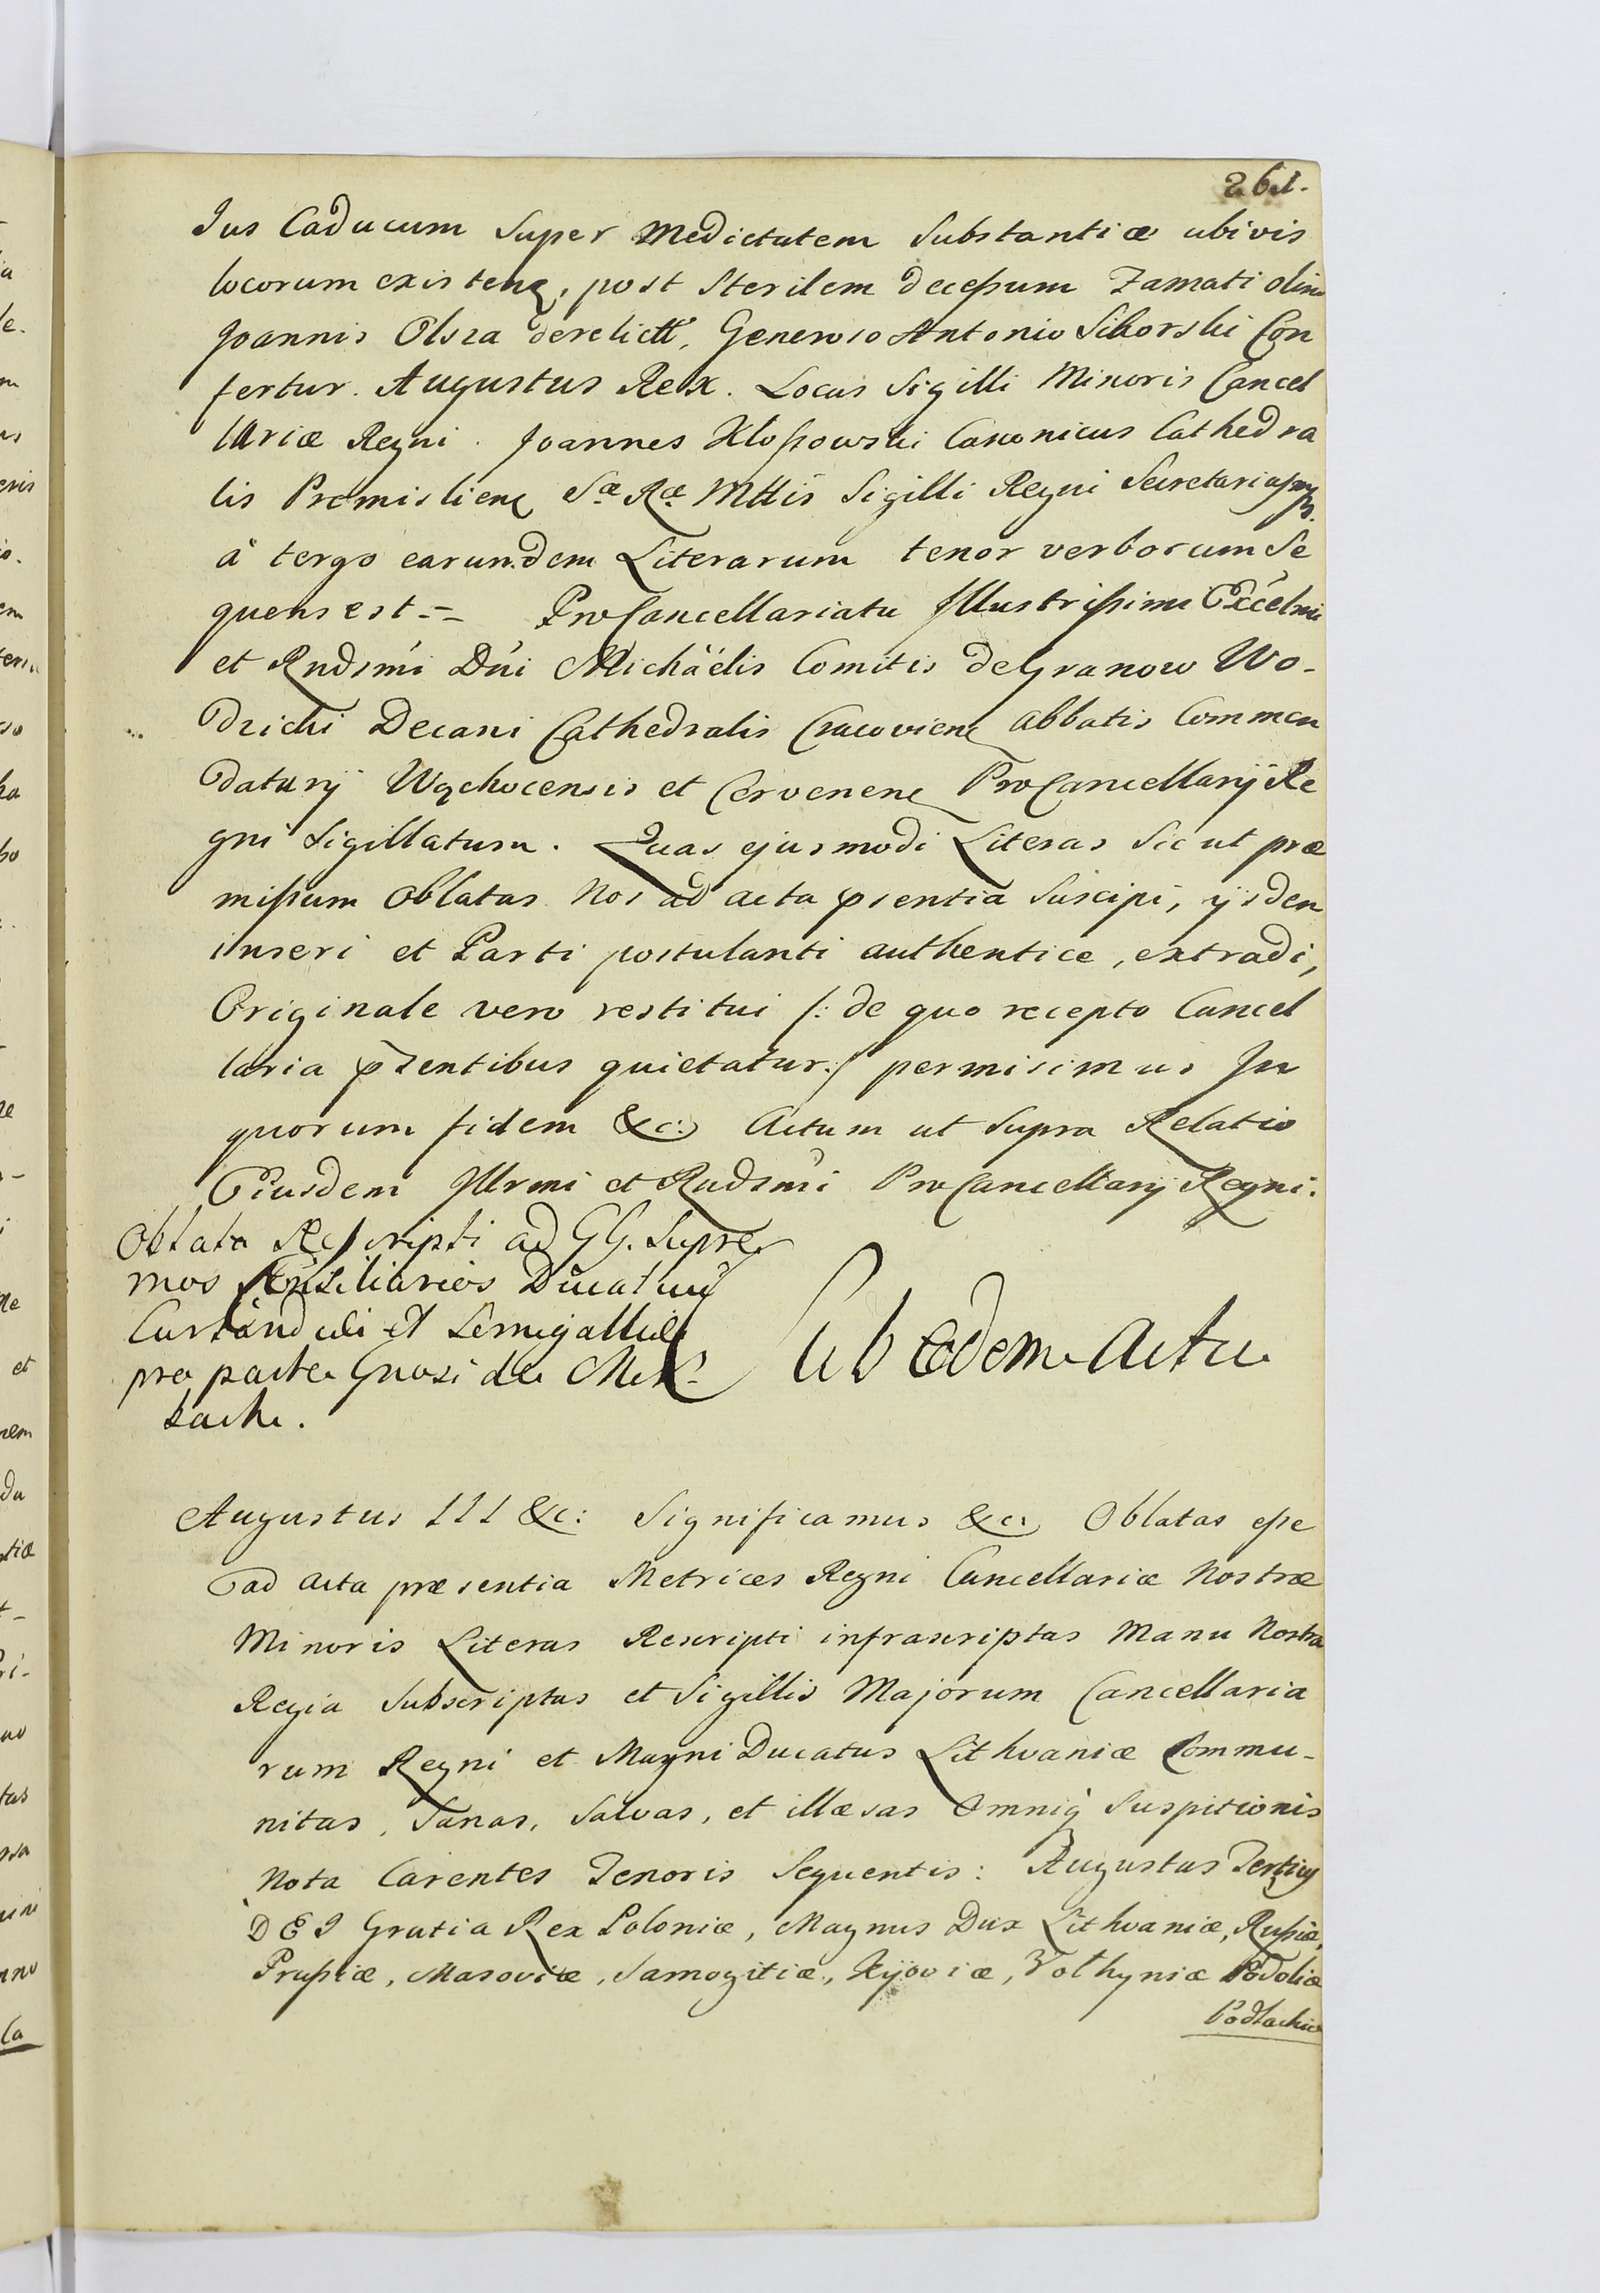 261.
Jus Caducum Super Medietatem Substantiæ ubivis
locorum existenz, post Sterilem decessum Famati olim
Joannis Olsza derelictæ, Generoso Antonio Sikorski Con
fertur. Augustus Rex. Locus Sigilli Minoris Cancel
lariæ Regni. Joannes Kłossowski Canonicus Cathedra
lis Premislienz Sæ Ræ Mttis Sigilli Regni Secretarius mp.
à tergo earundem Literarum tenor verborum Se
quens est -- ProCancellariatu Illustrissimi Excelmi
et Rndsmi Dni Michäélis Comitis de Granow Wo-
dzicki Decani Cathedralis Cracovienz abbatis Commen
datarij Wąchocensis et Cervenenz ProCancellarij Re
gni Sigillatum. Quas ejusmodi Literas Sic ut præ
missum Oblatas Nos ad acta psentia Suscipi, ijsdem
inseri et Parti postulanti authentice, extradi,
Originale vero restitui /: de quo recepto Cancel
laria psentibus quietatur :/ permisimus In
quorum fidem &c: Actum ut Supra Relatio
Eiusdem Illrmi et Rndsmi ProCancellarij Regni.
Oblata Rescripti ad GG. Supre
mos Consiliarios Ducatuu
Curlandiæ et Semigalliæ
pro parte Gnosi de
Sub eodem Actu
Augustus III &c: Significamus &c: Oblatas esse
ad acta præsentia Metrices Regni Cancellariæ Nostræ
Minoris Literas Rescripti infrascriptas Manu Nostra
Regia Subscriptas et Sigillis Majorum Cancellaria
rum Regni et Magni Ducatus Lithvaniæ Commu-
nitas, Sanas, Salvas, et illæsas Omniq Suspitionis
Nota Carentes Tenoris Sequentis: Augustus Tertius
DEI Gratia Rex Poloniæ, Magnus Dux Lithvaniæ, Russiæ,
Prussiæ, Masoviæ, Samogitiæ, Kijoviæ, Volhyniæ Podoliæ
Podlachiæ